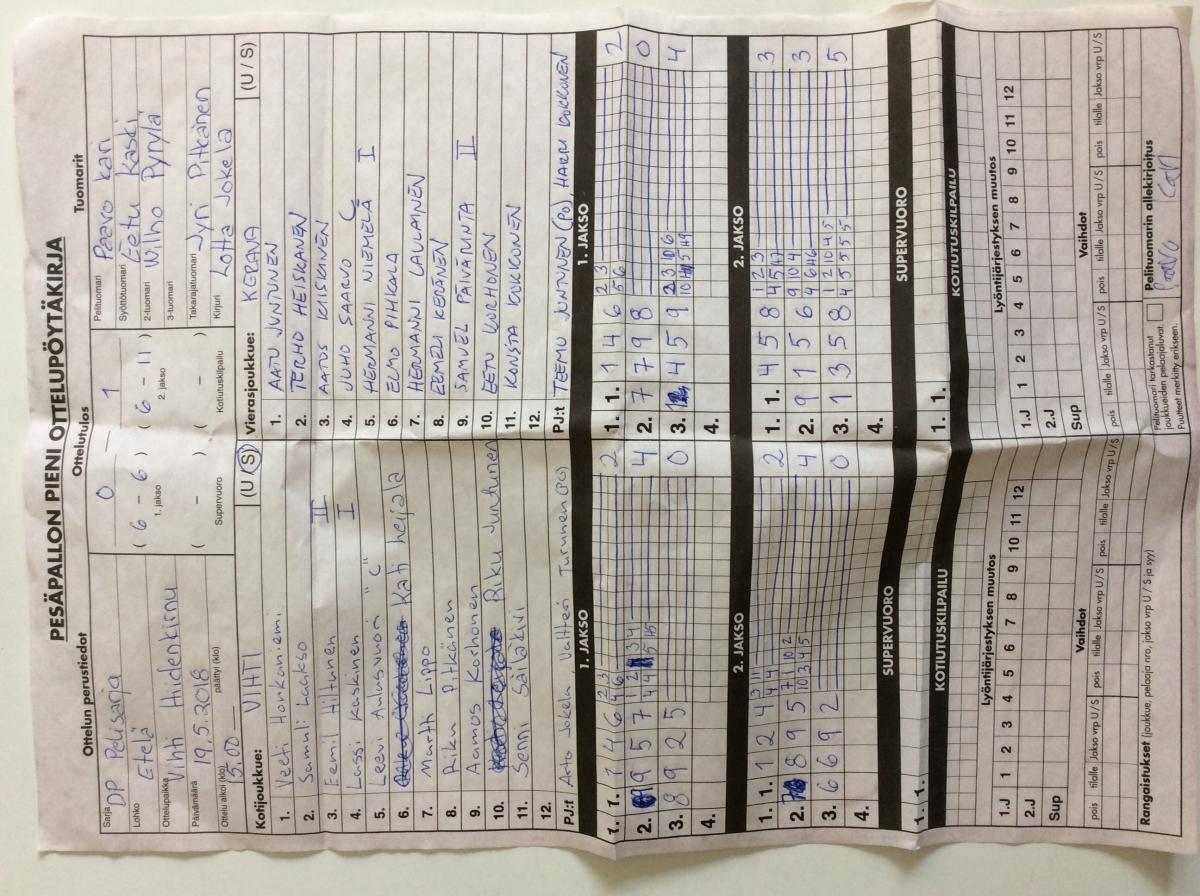 PESÄPALLON PIENI OTTELUPÖYTÄKIRJA
Ottelun perustiedot
Sarja DP Pelisarja
Lohko Etelä
Ottelupaikka Vihti Hiidenkirnu
Päivämäärä 19.5.2018
Ottelu alkoi (klo) 15.00 päättyi (klo)
Ottelutulos
0 – 1
( 6 – 6 ) ( 6 – 11 )
1. jakso 2. jakso
( – ) ( – )
Supervuoro Kotiutuskilpailu
Tuomarit
Pelituomari Paavo Kari
Syöttötuomari Eetu Kaski
2-tuomari Wilho Pyrylä
3-tuomari
Takarajatuomari Jyri Pitkänen
Kirjuri Lotta Jokela
Kotijoukkue: VIHTI (U / S)
1. Veeti Honkaniemi
2. Samuli Laakso
3. Eemil Hiltunen II
4. Lassi Kaskinen I
5. Leevi Aulusvuori "C"
6. Kati heijala
7. Martti Lippo
8. Riku Pitkänen
9. Aamos Korhonen
10. Riku Juntunen
11. Senni Säläkivi
12.
PJ:t Arto Jokela, Valtteri Turunen (PO)
Vierasjoukkue: KERAVA (U / S)
1. AATU JUNTUNEN
2. TERHO HEISKANEN
3. AATOS KIISKINEN
4. JUHO SAARVO C
5. HERMANNI NIEMELÄ I
6. ELMO PIHKALA
7. HERMANNI LAULAINEN
8. EEMELI KERÄNEN
9. SAMUEL PÄIVÄRINTA II
10. EETU KORHONEN
11. KONSTA KUKKONEN
12.
PJ:t TEEMU JUNTUNEN (PO) HARRI KUKKONEN
1. JAKSO
1. 1. 1 4 6 2
2. 9 5 7 4
3. 8 9 2 5 0
4.
1. JAKSO
1. 1. 1 4 6 2
2. 7 7 9 8 0
3. 4 5 9 4
4.
2. JAKSO
1. 1. 1 2 4 2
2. 8 9 5 4
3. 6 6 9 2 0
4.
2. JAKSO
1. 1. 4 5 8 3
2. 9 1 5 6 3
3. 1 3 5 8 5
4.
SUPERVUORO
1. 1.
SUPERVUORO
1. 1.
KOTIUTUSKILPAILU
KOTIUTUSKILPAILU
Lyöntijärjestyksen muutos
1.J 1 2 3 4 5 6 7 8 9 10 11 12
2.J
Sup
Lyöntijärjestyksen muutos
1.J 1 2 3 4 5 6 7 8 9 10 11 12
2.J
Sup
Vaihdot
pois tilalle Jakso vrp U / S pois tilalle Jakso vrp U / S pois tilalle Jakso vrp U / S
Vaihdot
pois tilalle Jakso vrp U / S pois tilalle Jakso vrp U / S pois tilalle Jakso vrp U / S
Rangaistukset (joukkue, pelaaja nro, jakso vrp U / S ja syy)
Pelituomari tarkastanut
joukkueiden pelaajaluvat.
Puutteet merkitty erikseen.
Pelituomarin allekirjoitus